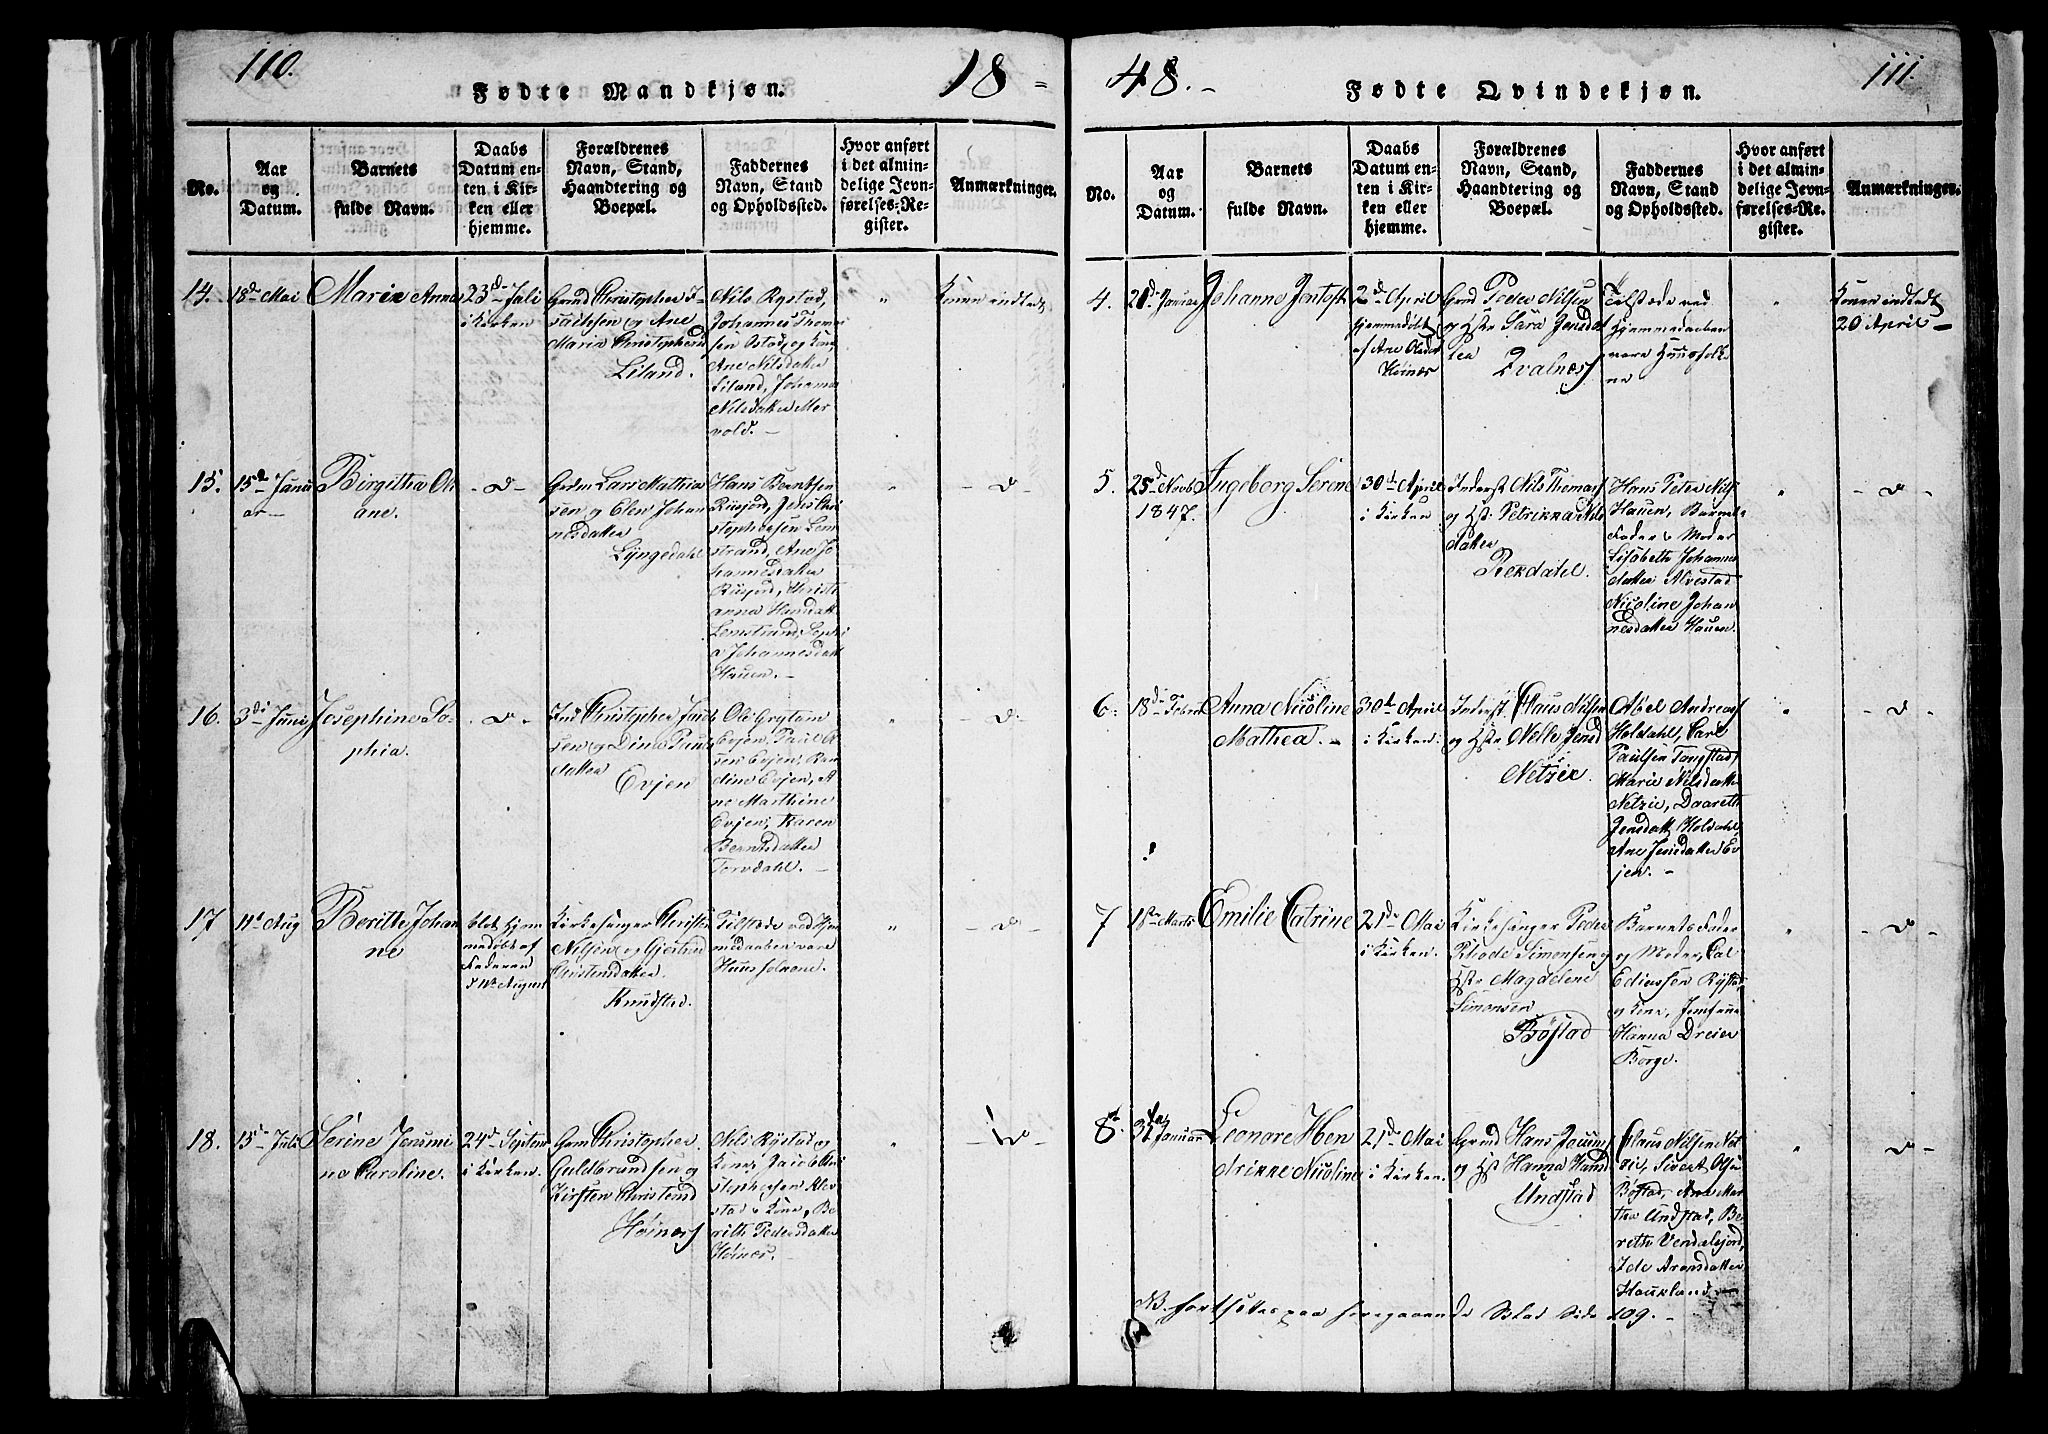 110.
Fødte Mandkjøn.
18 =
No.
Aar
og
Datum.
Barnets
fulde Navn.
Daabs
Datum en-
ten i Kir-
ken eller
hjemme.
Forældrenes
Navn, Stand,
Haandtering og
Boepæl.
Faddernes
Navn, Stand
og Opholdssted.
Hvor anført
i det almin-
delige Jevn-
førelses-Re-
gister.
Anmærkninger.
14.
18de Mai
Marie Anna
23de Juli
i Kirken
Gmd Christopher I-
sachsen og Ane
Marie Christophersd
Liland.
Nils Rystad,
Johannes Thom-
sen Ostad, og Kone
Ane Nilsdatter
Liland, Johanna
Nilsdatter Mer-
vold. -
"
Konen indledt
15.
15de Janu
ar -
Birgitha Oli
ane.
- d -
Gdm Lars Mathia
sen og Elen Johan
nesdatter
Lyngedahl
Hans Berntsen
Rusjord, Jens Chri
stophersen Lem-
strand, Ane Jo
hannesdatter
Rusjord, Christi
anna Hansdatt
Lemstrand, Sophi
a Johannesdatt
Hauen. -
"
- d -
16.
3di Janu
Josephine So-
phia.
- d -
Ind Christopher Jacob
sen og Dina Pauls
datter
Evjen
Ole Grytem
Evjen, Paul
sen Evjen, Ran
dine Evjen, A
ne Marthine
Evjen, Karen
Berntsdatter
Torvdahl. -
"
- d -
17
11te Aug
Berithe Johan
ne
blot hjem
medøbt af
Faderen
d 11te August
Kirkesanger Christen
Nilsen og Gjertrud
Christensdatter
Knudstad.
Tilstæde ved Hjem
medaaben vare
Huusfolkene.
"
- d -
18.
15de Juli
Serine Jensmi
ne Caroline.
24de Septem
i Kirken.
Gdm Christopher
Guldbrandsen og
Kirsten Christensd
Høinæs
Nils Rystad og
Kone, Jacob Chri
stophersen Alve
stad & Kone, Be
rith Pedersdatter
Høinæs. -
"
- d -
48. -
Fødte Qvindekjøn.
111.
No.
Aar
og
Datum.
Barnets
fulde Navn.
Daabs
Datum en-
ten i Kir-
ken eller
hjemme.
Forældrenes
Navn, Stand,
Haandtering og
Boepæl.
Faddernes
Navn, Stand
og Opholdssted.
Hvor anført
i det almin-
delige Jevn-
førelses-Re
gister.
Anmærkninger.
4.
20de Januar
Johanne Jentoft
2de April
hjemmedøbt
af Ane Olsdat
Høinæs
Gmd Peder Nilsen
og Hst: Sara Jensdat
ter
Qvalnæs
Tilstæde ved
Hjemmedaaben
vare Huusfolke
ne
"
Konen indledt
20 April -
5.
25de Novb
1847.
Ingeborg Serene
30te April
i Kirken
Inderst Nils Thomas
og Hst: Petrikka Nils
datter
Rekdahl.
Hans Peter Nils
Hauen, Barnets
Fader & Moder
Lisabeth Johannes
datter Alvestad
Nicoline Johan
nesdatter Hauen.
"
- d -
6.
18de Febru
Anna Nicoline
Mathea. -
30te April
i Kirken.
Inderst Claus Nilsen
og Hst: Nelle Jensd
Netzie
Abel Andreas
Holdahl, Carl
Paulsen Tangstad
Marie Nilsdatter
Netzie, Daareth
Jensdatt Holdahl
Ane Jensdatter Ev
jen. -
"
- d -
7
18de Marts
Emilie Catrine
21de Mai
i Kirken.
Kirkesanger Peder
Rhode Simonsen og
Hst: Magdelene
Simonsen
Bøstad
Barnets Fader
og Moder, Cal
Ediassen Rystad
og Kone, Jomfrue
Hanna Dreier
Borge.
"
- d -
8.
31te Januar
Leonore Hen
drikke Nicoline
21de Mai
i Kirken.
Gmd Hans Joaum
og Hst Hanna Hansd
Undstad
Claus Nilsen Net
zie, Sivert Olsen
Bøstad, Ane Mar
tha Undstad, Be-
reth Vendalsjord,
Ide Aronsdatter
Haukland -
"
- d -
NB. fortsættes paa foregaaende Blad Side 109. -